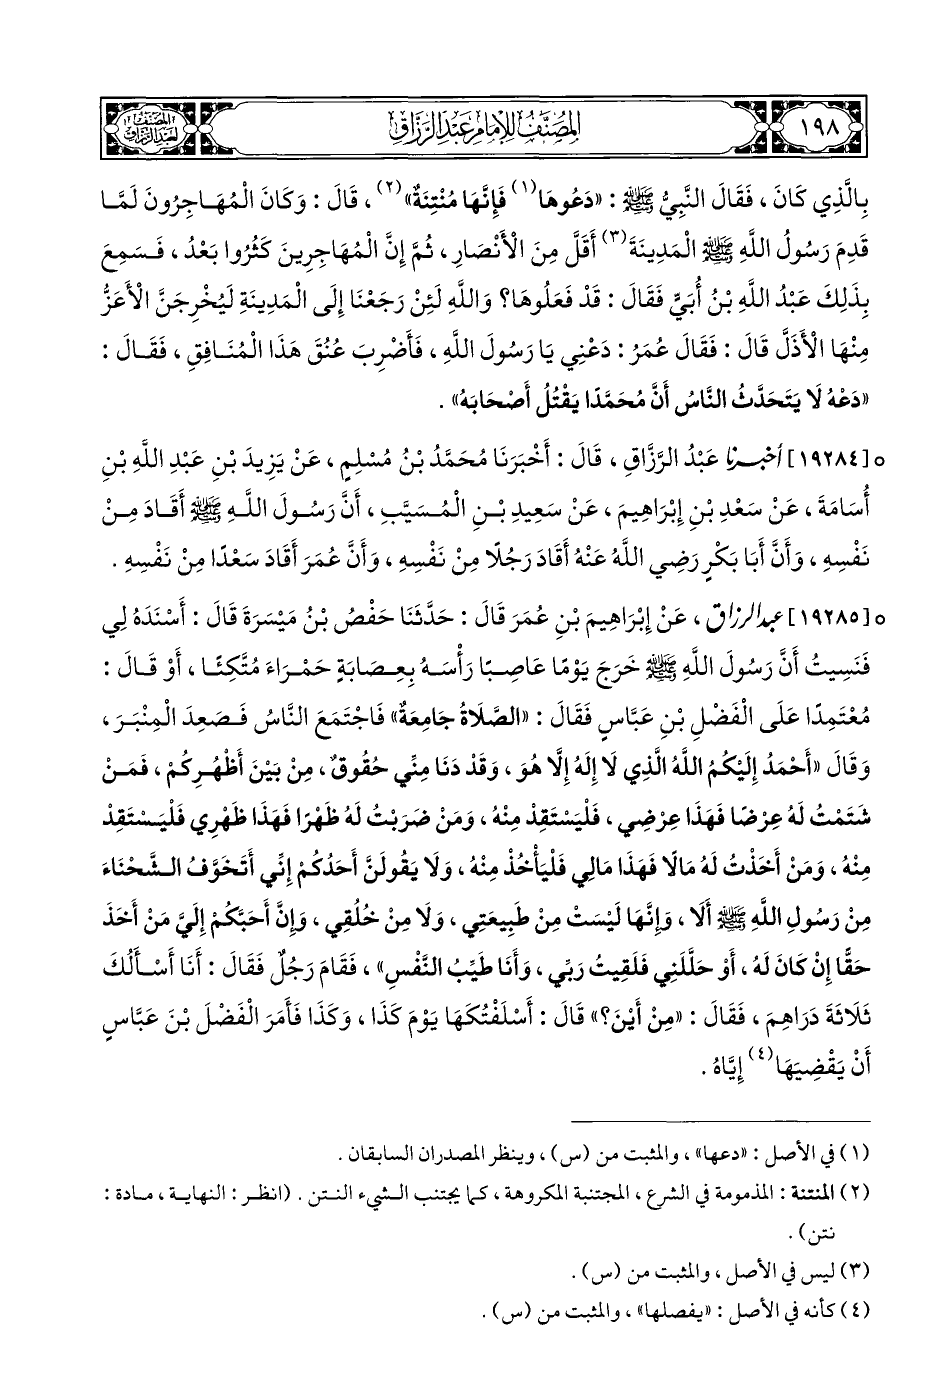 ١٩٨
المصنف للإمام عبد الرزاق
المصنف
لعبد الرزاق
بِالَّذِي كَانَ ، فَقَالَ النَّبِيُّ ﷺ : «دَعُوهَا(١) فَإِنَّهَا مُنْتِنَةٌ»(٢) ، قَالَ : وَكَانَ الْمُهَاجِرُونَ لَمَّا
قَدِمَ رَسُولُ اللَّهِ ﷺ الْمَدِينَةَ(٣) أَقَلَّ مِنَ الْأَنْصَارِ ، ثُمَّ إِنَّ الْمُهَاجِرِينَ كَثُرُوا بَعْدُ ، فَسَمِعَ
بِذَلِكَ عَبْدُ اللَّهِ بْنُ أُبَيٍّ فَقَالَ : قَدْ فَعَلُوهَا؟ وَاللَّهِ لَئِنْ رَجَعْنَا إِلَى الْمَدِينَةِ لَيُخْرِجَنَّ الْأَعَزُّ
مِنْهَا الْأَذَلَّ قَالَ : فَقَالَ عُمَرُ : دَعْنِي يَا رَسُولَ اللَّهِ ، فَأَضْرِبَ عُنُقَ هَذَا الْمُنَافِقِ ، فَقَالَ :
«دَعْهُ لَا يَتَحَدَّثُ النَّاسُ أَنَّ مُحَمَّدًا يَقْتُلُ أَصْحَابَهُ» .
○ [١٩٢٨٤] أخبرنا عَبْدُ الرَّزَّاقِ ، قَالَ : أَخْبَرَنَا مُحَمَّدُ بْنُ مُسْلِمٍ ، عَنْ يَزِيدَ بْنِ عَبْدِ اللَّهِ بْنِ
أُسَامَةَ ، عَنْ سَعْدِ بْنِ إِبْرَاهِيمَ ، عَنْ سَعِيدِ بْنِ الْمُسَيَّبِ ، أَنَّ رَسُولَ اللَّهِ ﷺ أَقَادَ مِنْ
نَفْسِهِ ، وَأَنَّ أَبَا بَكْرٍ رَضِيَ اللَّهُ عَنْهُ أَقَادَ رَجُلًا مِنْ نَفْسِهِ ، وَأَنَّ عُمَرَ أَقَادَ سَعْدًا مِنْ نَفْسِهِ .
○ [١٩٢٨٥] عبد الرزاق ، عَنْ إِبْرَاهِيمَ بْنِ عُمَرَ قَالَ : حَدَّثَنَا حَفْصُ بْنُ مَيْسَرَةَ قَالَ : أَسْنَدَهُ لِي
فَنَسِيتُ أَنَّ رَسُولَ اللَّهِ ﷺ خَرَجَ يَوْمًا عَاصِبًا رَأْسَهُ بِعِصَابَةٍ حَمْرَاءَ مُتَّكِئًا ، أَوْ قَالَ :
مُعْتَمِدًا عَلَى الْفَضْلِ بْنِ عَبَّاسٍ فَقَالَ : «الصَّلَاةُ جَامِعَةٌ» فَاجْتَمَعَ النَّاسُ فَصَعِدَ الْمِنْبَرَ ،
وَقَالَ «أَحْمَدُ إِلَيْكُمُ اللَّهَ الَّذِي لَا إِلَهَ إِلَّا هُوَ ، وَقَدْ دَنَا مِنِّي حُقُوقٌ ، مِنْ بَيْنِ أَظْهُرِكُمْ ، فَمَنْ
شَتَمْتُ لَهُ عِرْضًا فَهَذَا عِرْضِي ، فَلْيَسْتَقِدْ مِنْهُ ، وَمَنْ ضَرَبْتُ لَهُ ظَهْرًا فَهَذَا ظَهْرِي فَلْيَسْتَقِدْ
مِنْهُ ، وَمَنْ أَخَذْتُ لَهُ مَالًا فَهَذَا مَالِي فَلْيَأْخُذْ مِنْهُ ، وَلَا يَقُولَنَّ أَحَدُكُمْ إِنِّي أَتَخَوَّفُ الشَّحْنَاءَ
مِنْ رَسُولِ اللَّهِ ﷺ أَلَا ، وَإِنَّهَا لَيْسَتْ مِنْ طَبِيعَتِي ، وَلَا مِنْ خُلُقِي ، وَإِنَّ أَحَبَّكُمْ إِلَيَّ مَنْ أَخَذَ
حَقًّا إِنْ كَانَ لَهُ ، أَوْ حَلَّلَنِي فَلَقِيتُ رَبِّي ، وَأَنَا طَيِّبُ النَّفْسِ» ، فَقَامَ رَجُلٌ فَقَالَ : أَنَا أَسْأَلُكَ
ثَلَاثَةَ دَرَاهِمَ ، فَقَالَ : «مِنْ أَيْنَ؟» قَالَ : أَسْلَفْتُكَهَا يَوْمَ كَذَا ، وَكَذَا فَأَمَرَ الْفَضْلَ بْنَ عَبَّاسٍ
أَنْ يَقْضِيَهَا(٤) إِيَّاهُ .
(١) في الأصل : «دعها» ، والمثبت من (س) ، وينظر المصدران السابقان .
(٢) المنتنة : المذمومة في الشرع ، المجتنبة المكروهة ، كما يجتنب الشيء النتن . (انظر : النهاية ، مادة :
نتن) .
(٣) ليس في الأصل ، والمثبت من (س) .
(٤) كأنه في الأصل : «يفصلها» ، والمثبت من (س) .